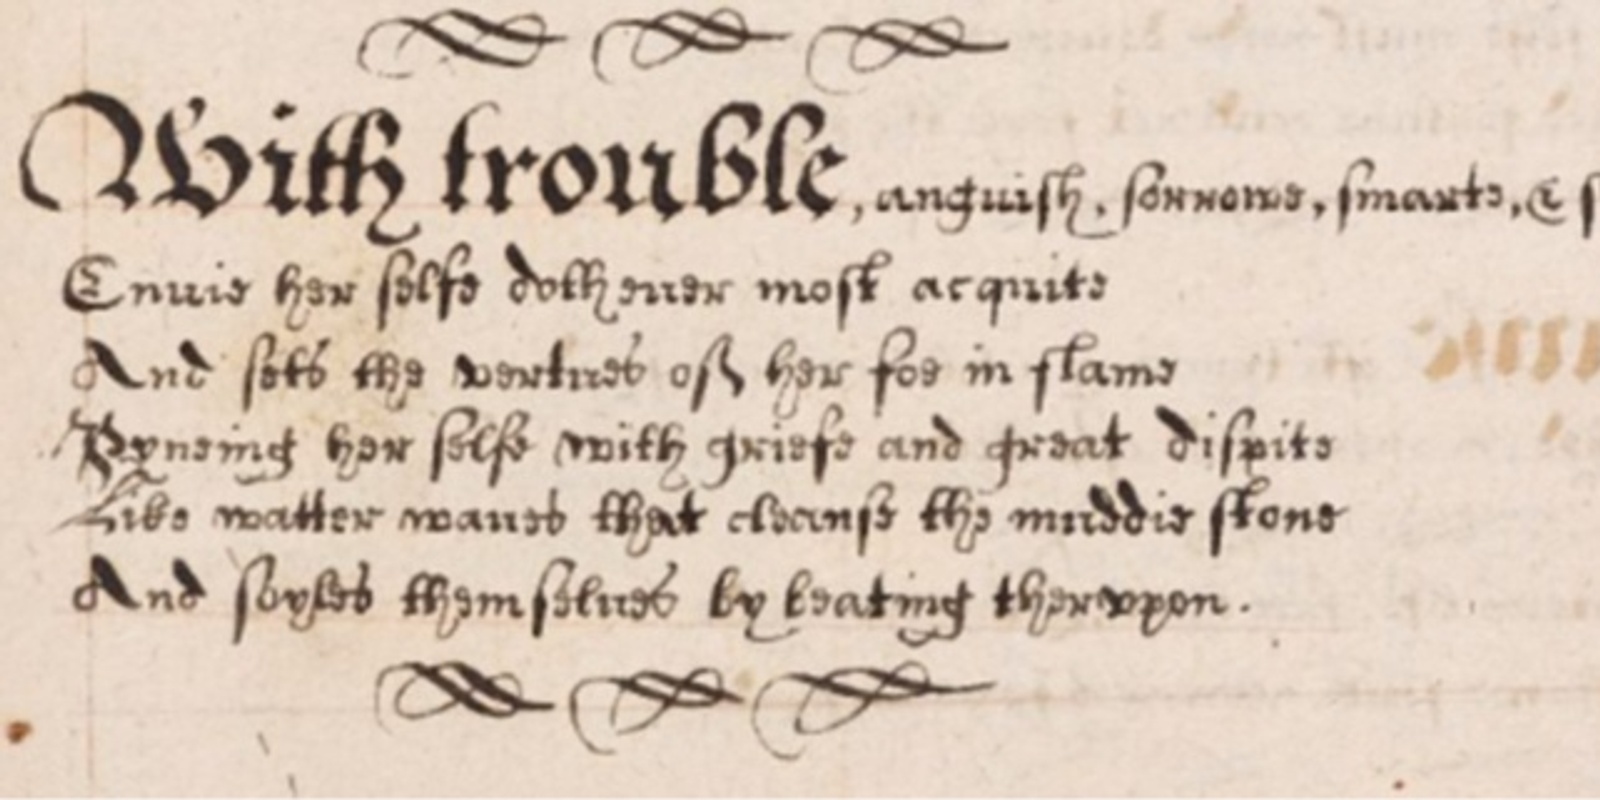 With trouble, anguish, sorrowe, smarte, &
Enuie her selfe doth euer most acquite
And sets the vertues off her foe in flame
Pyneing her selfe with griefe and great dispite
Like watter waues that cleanse the muddie stone
And soyles themselues by beating thervpon.